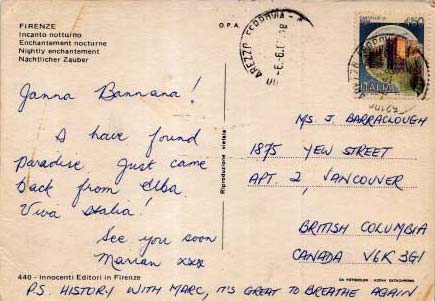 FIRENZE
Incanto notturno
Enchantement nocturne
Nightly enchantement
Nächtlicher Zauber
O.P.A.
AREZZO FERROVIA
450
ITALIA
Janna Bannana!
I have found
Paradise. Just came
back from Elba.
Viva Italia!
See you soon
Marian xxx
Riproduzione vietata
MS J BARRACLOUGH
1875 YEW STREET
APT. 2, VANCOUVER,
BRITISH COLUMBIA
CANADA V6K 3G1
440 - Innocenti Editori in Firenze
P.S. HISTORY WITH MARC, IT'S GREAT TO BREATHE AGAIN